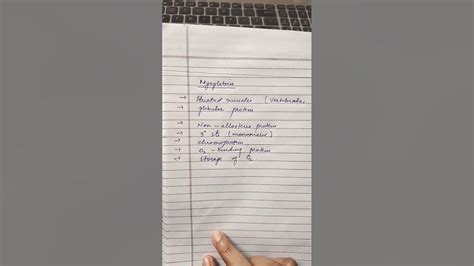 Myoglobin
→ Striated muscles (Vertebrates
→ globular protein
→ Non-allosteric protein
→ 3° st (monomer)
→ chromoprotein
→ O₂-binding protein
→ Storage of O₂